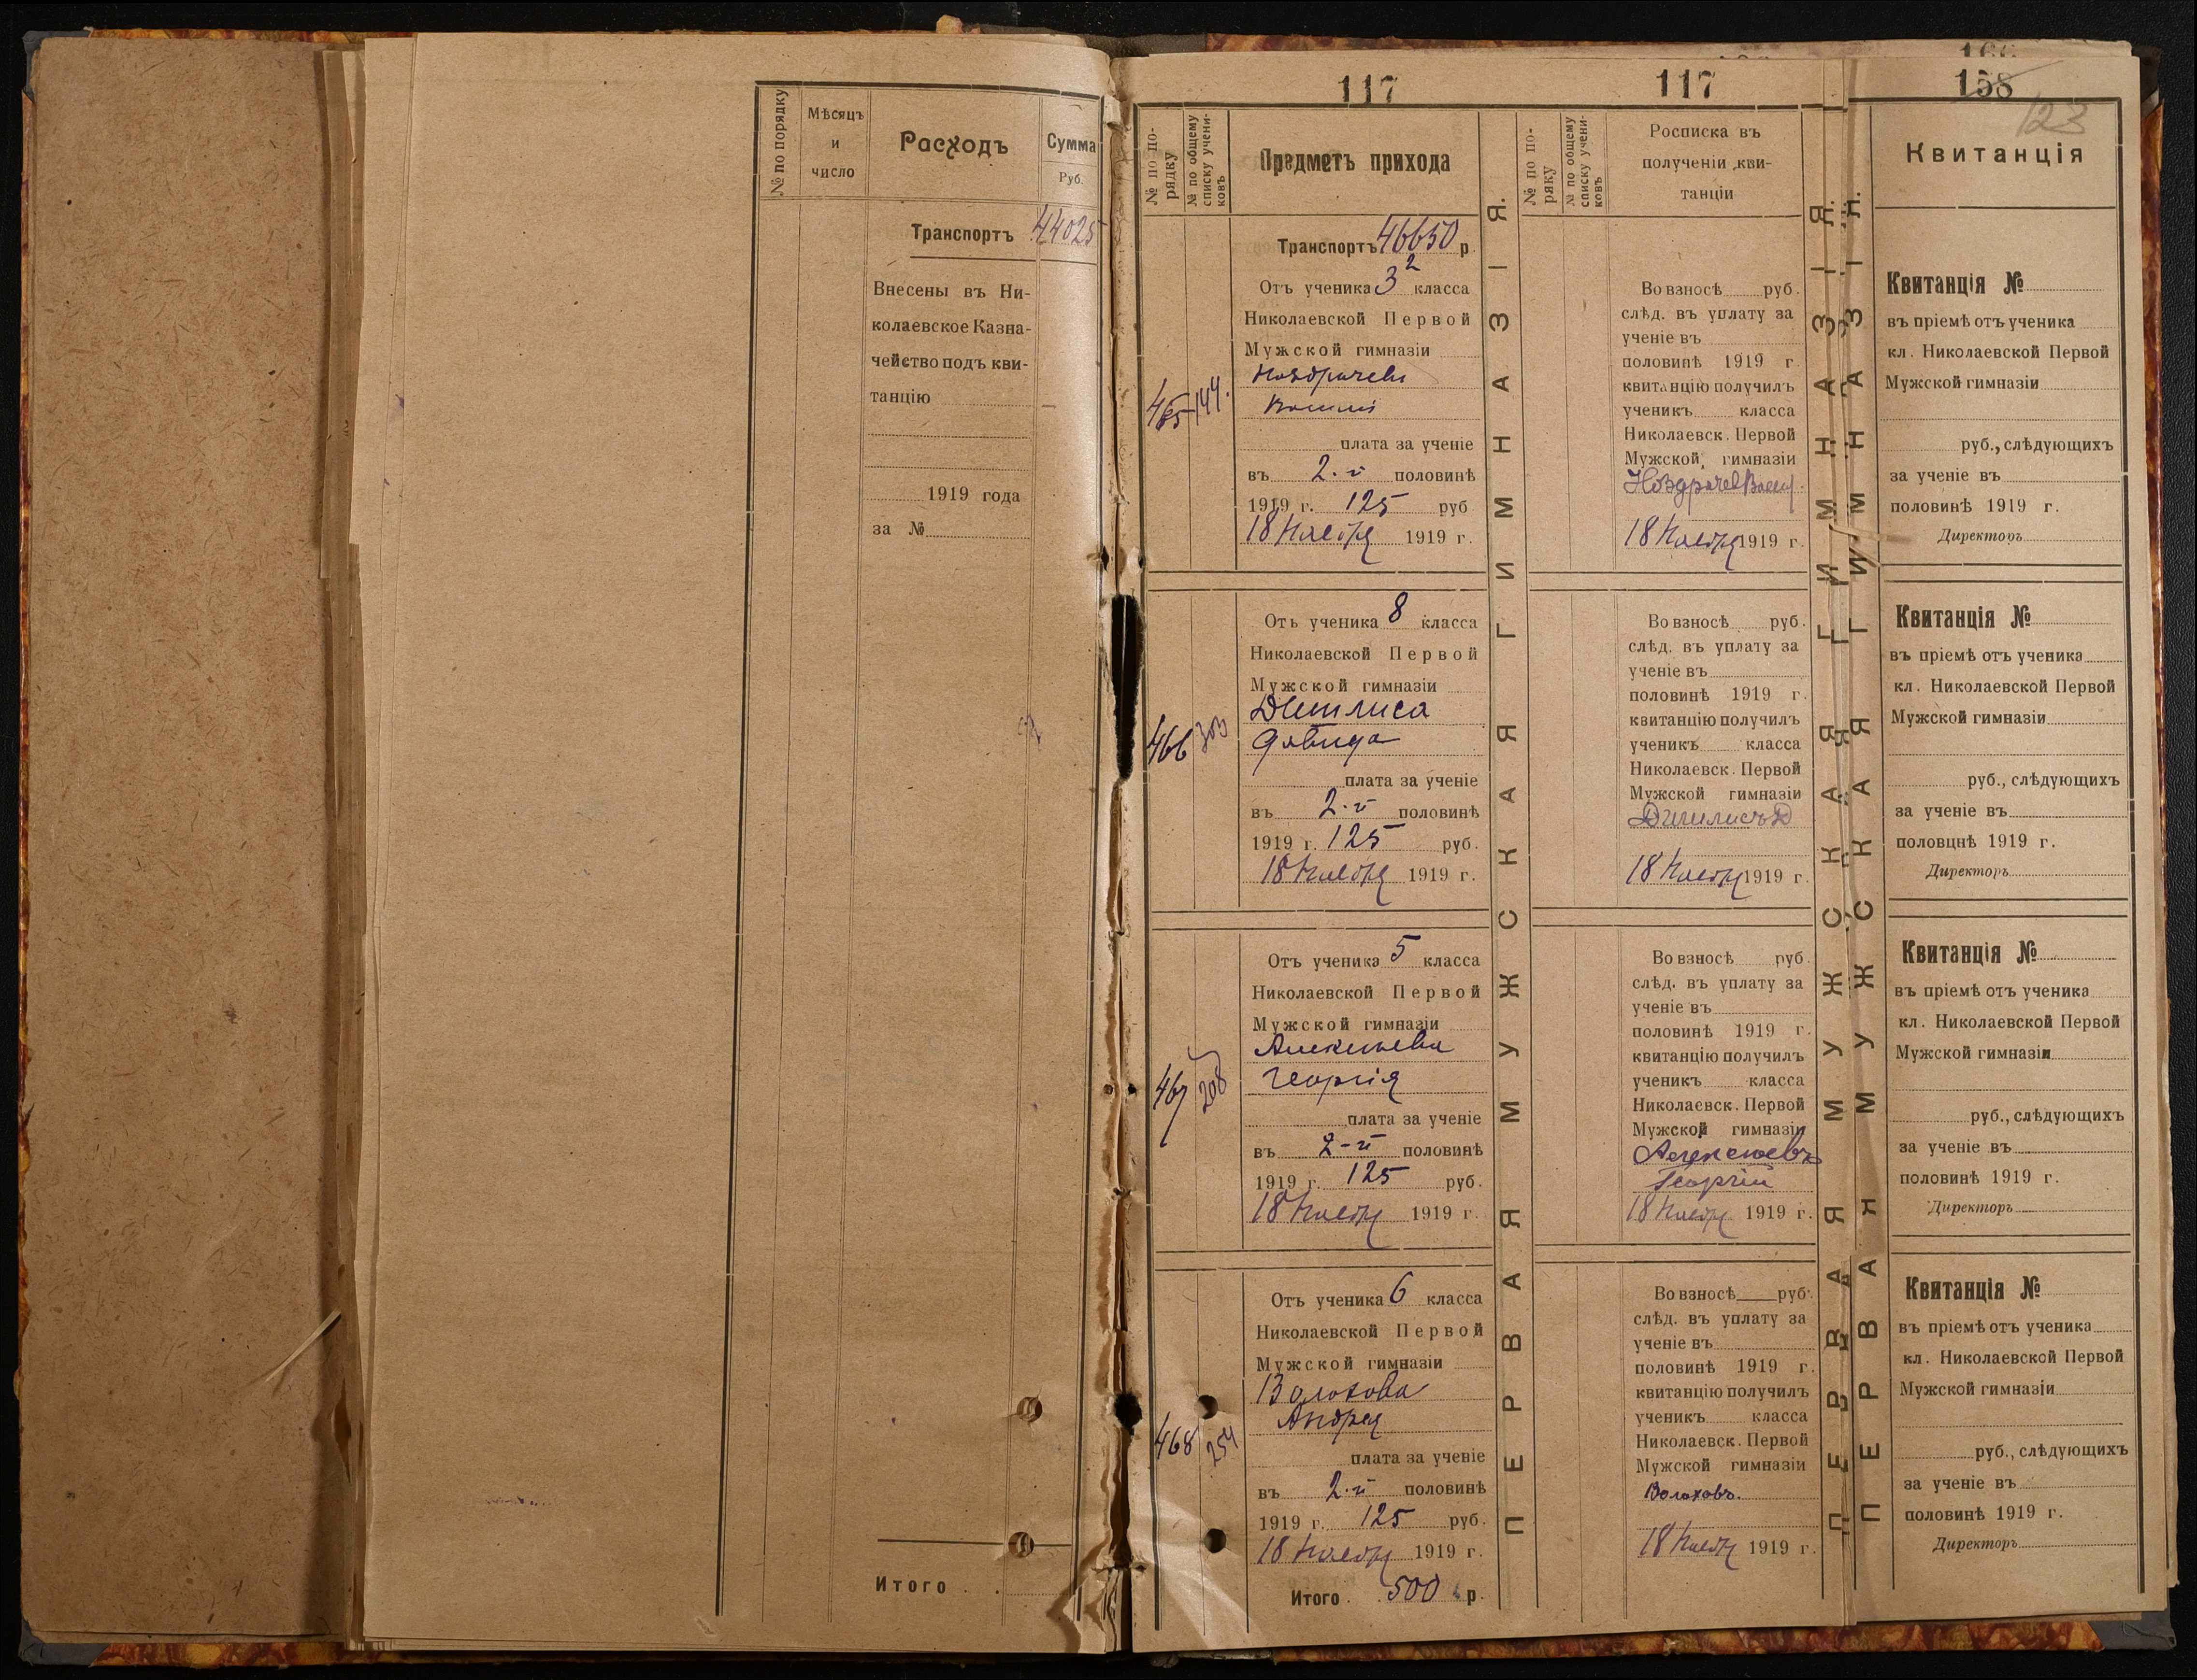 № по порядку
Мѣсяцъ
и
число
Расходъ
Сумма
Руб.
Транспортъ 44025
Внесены въ Ни-
колаевское Казна-
чейство подъ кви-
танцію
1919 года
за №
Итого . .
117
№ по по-
рядку
№ по общему
списку учени-
ковъ
Предметъ прихода
Транспортъ 46650 р
465
144.
Отъ ученика 3² класса
Николаевской Первой
Мужской гимназіи
Ноздрачева
плата за ученіе
въ 2-й половинѣ
1919 г. 125 руб
18 Ноября 1919 г.
466
303
Отъ ученика 8 класса
Николаевской Первой
Мужской гимназіи
Давида
плата за ученіе
въ 2-й половинѣ
1919 г. 125 руб.
18 Ноября 1919 г.
467
208
Отъ ученика 5 класса
Николаевской Первой
Мужской гимназіи
Алексѣева
Георгія
плата за ученіе
въ 2-й половинѣ
1919 г. 125 руб.
18 Ноября 1919 г.
468
254
Отъ ученика 6 класса
Николаевской Первой
Мужской гимназіи
Волохова
Андрея
плата за ученіе
въ 2-й половинѣ
1919 г. 125 руб.
18 Ноября 1919 г.
Итого . 500 р.
ПЕРВАЯ МУЖСКАЯ ГИМНАЗІЯ.
117
№ по по-
ряку
№ по общему
списку учени-
ковъ
Росписка въ
полученіи кви-
танціи
Во взносѣ руб.
слѣд. въ уплату за
ученіе въ
половинѣ 1919 г
квитанцію получилъ
ученикъ класса
Николаевск. Первой
Мужской гимназіи
Ноздрачев Васил
18 Ноября 1919 г.
Во взносѣ руб.
слѣд. въ уплату за
ученіе въ
половинѣ 1919 г.
квитанцію получилъ
ученикъ класса
Николаевск. Первой
Мужской гимназіи
18 Ноября 1919 г.
Во взносѣ руб.
слѣд. въ уплату за
ученіе въ
половинѣ 1919 г.
квитанцію получилъ
ученикъ класса
Николаевск. Первой
Мужской гимназіи
Алексѣевъ
Георгій
18 Ноября 1919 г.
Во взносѣ руб.
слѣд. въ уплату за
ученіе въ
половинѣ 1919 г.
квитанцію получилъ
ученикъ класса
Николаевск. Первой
Мужской гимназіи
Волоховъ.
18 Ноября 1919 г.
ПЕРВАЯ МУЖСКАЯ ГИМНАЗІЯ.
ПЕРВАЯ МУЖСКАЯ ГИМНАЗІЯ.
158
123
Квитанція
Квитанція №
въ пріемѣ отъ ученика
кл. Николаевской Первой
Мужской гимназіи
руб., слѣдующихъ
за ученіе въ
половинѣ 1919 г.
Директоръ
Квитанція №
въ пріемѣ отъ ученика
кл. Николаевской Первой
Мужской гимназіи
руб., слѣдующихъ
за ученіе въ
половцнѣ 1919 г.
Директоръ
Квитанція №
въ пріемѣ отъ ученика
кл. Николаевской Первой
Мужской гимназіи
руб., слѣдующихъ
за ученіе въ
половинѣ 1919 г.
Директоръ
Квитанція №
въ пріемѣ отъ ученика
кл. Николаевской Первой
Мужской гимназіи
руб., слѣдующихъ
за ученіе въ
половинѣ 1919 г.
Директоръ